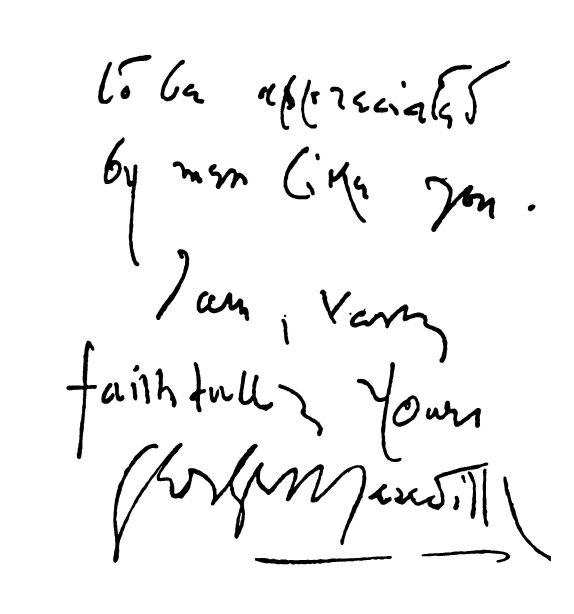 to be appreciated
by men like you.
I am, very
faithfully yours
George Meredith